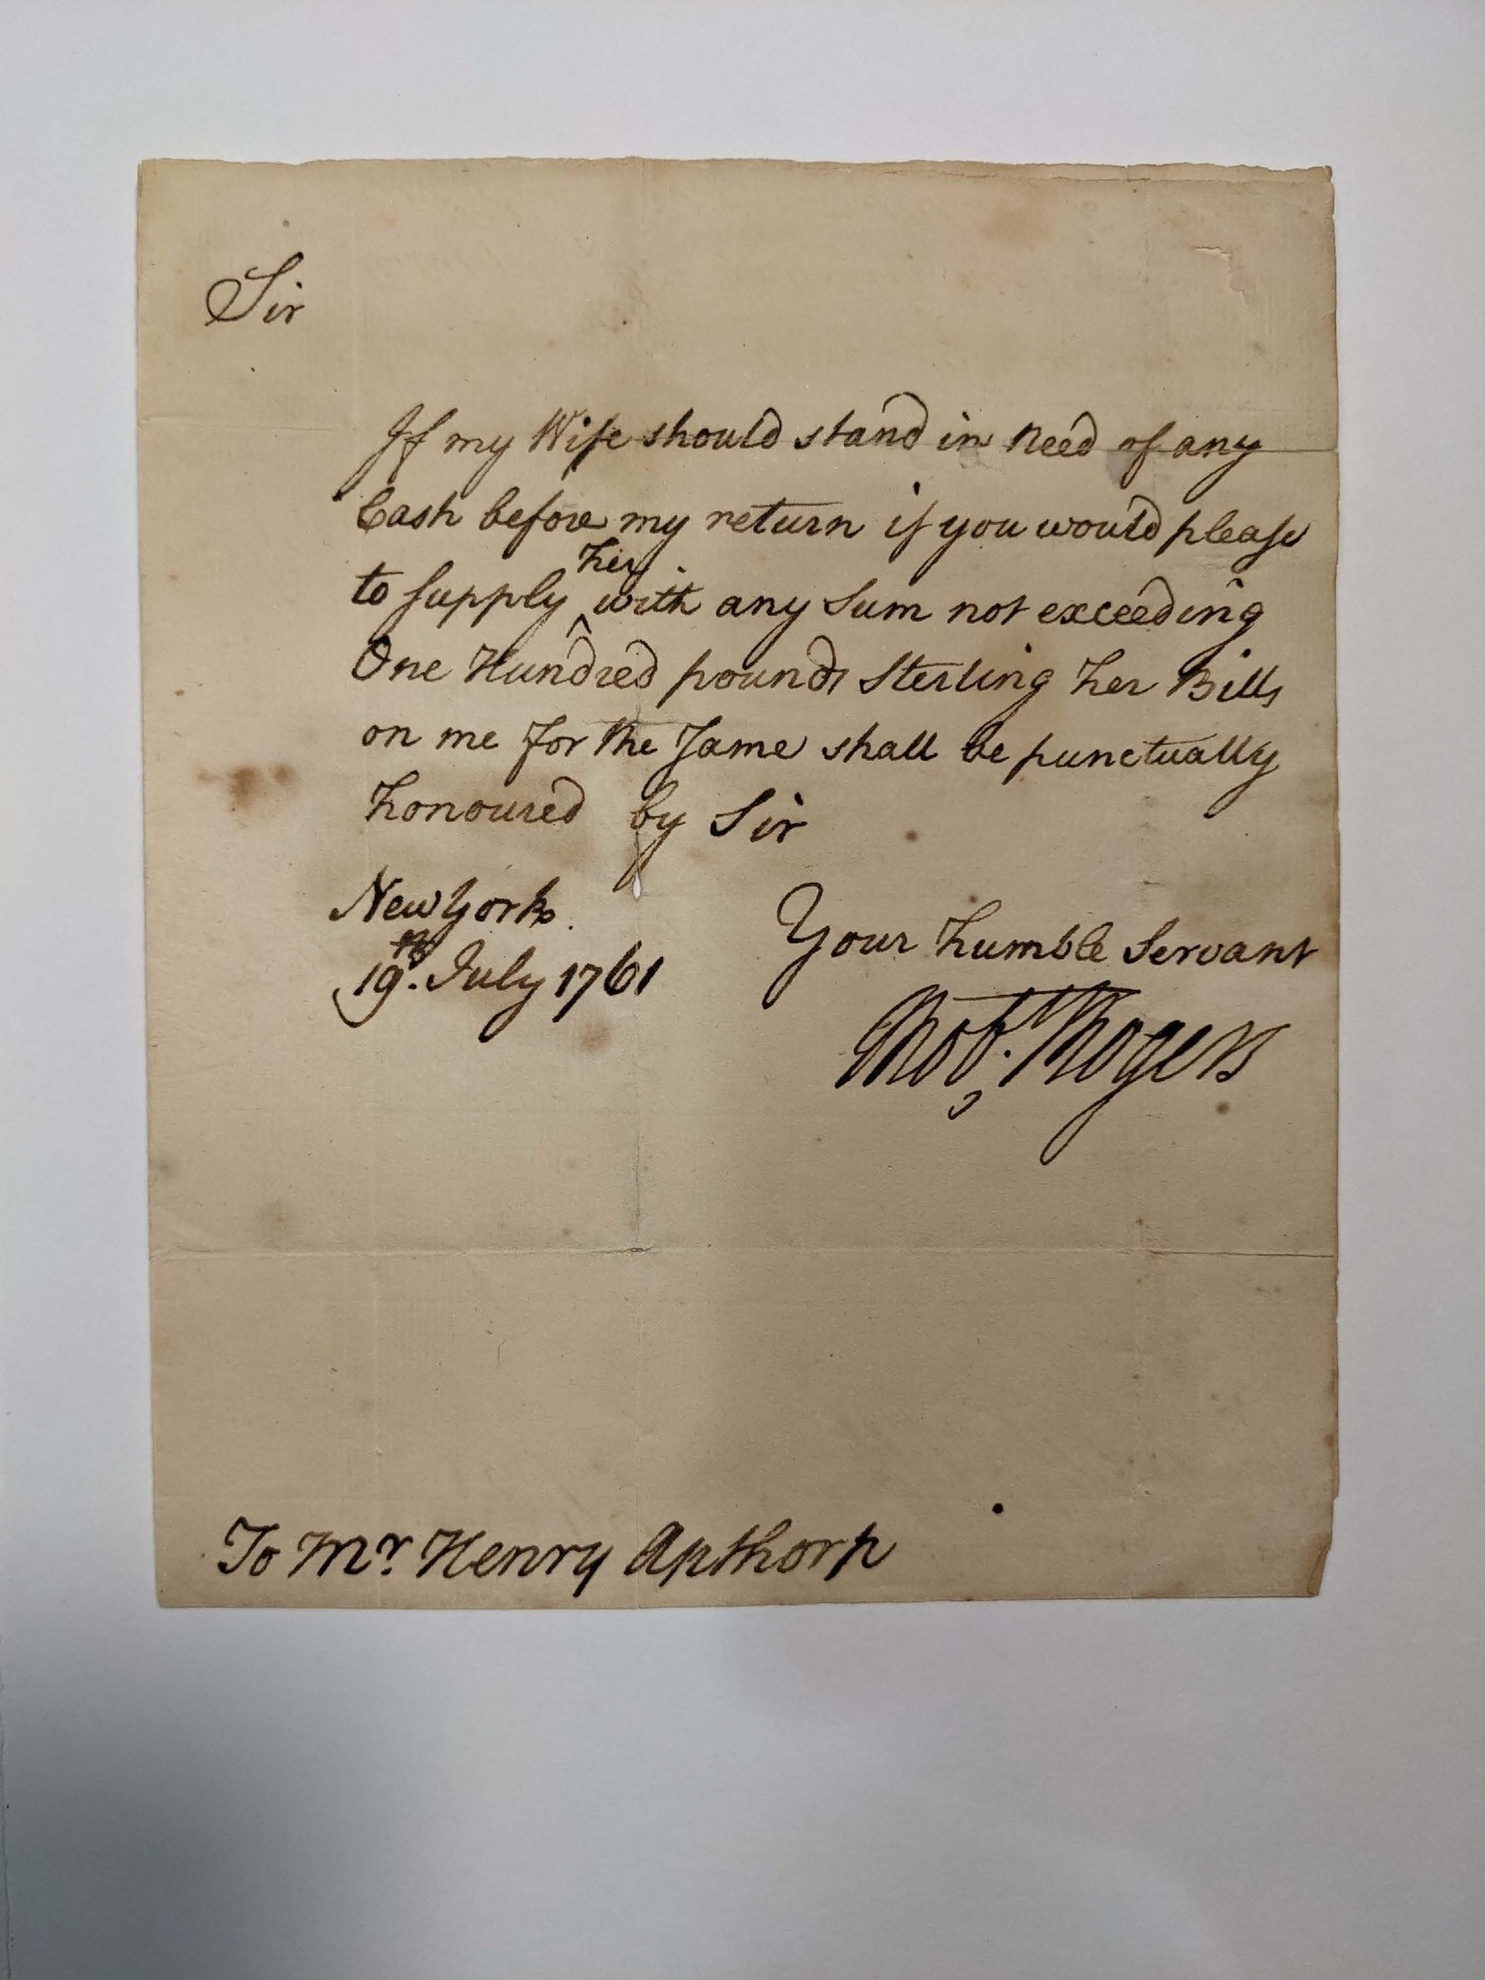 Sir
If my Wife should stand in need of any
Cash before my return if you would please
to supply ^her with any Sum not exceeding
One Hundred pounds Sterling her Bills
on me for the Same shall be punctually
honoured by Sir
New York.
19th. July 1761
Your humble Servant
Robt. Rogers
To Mr. Henry Apthorp